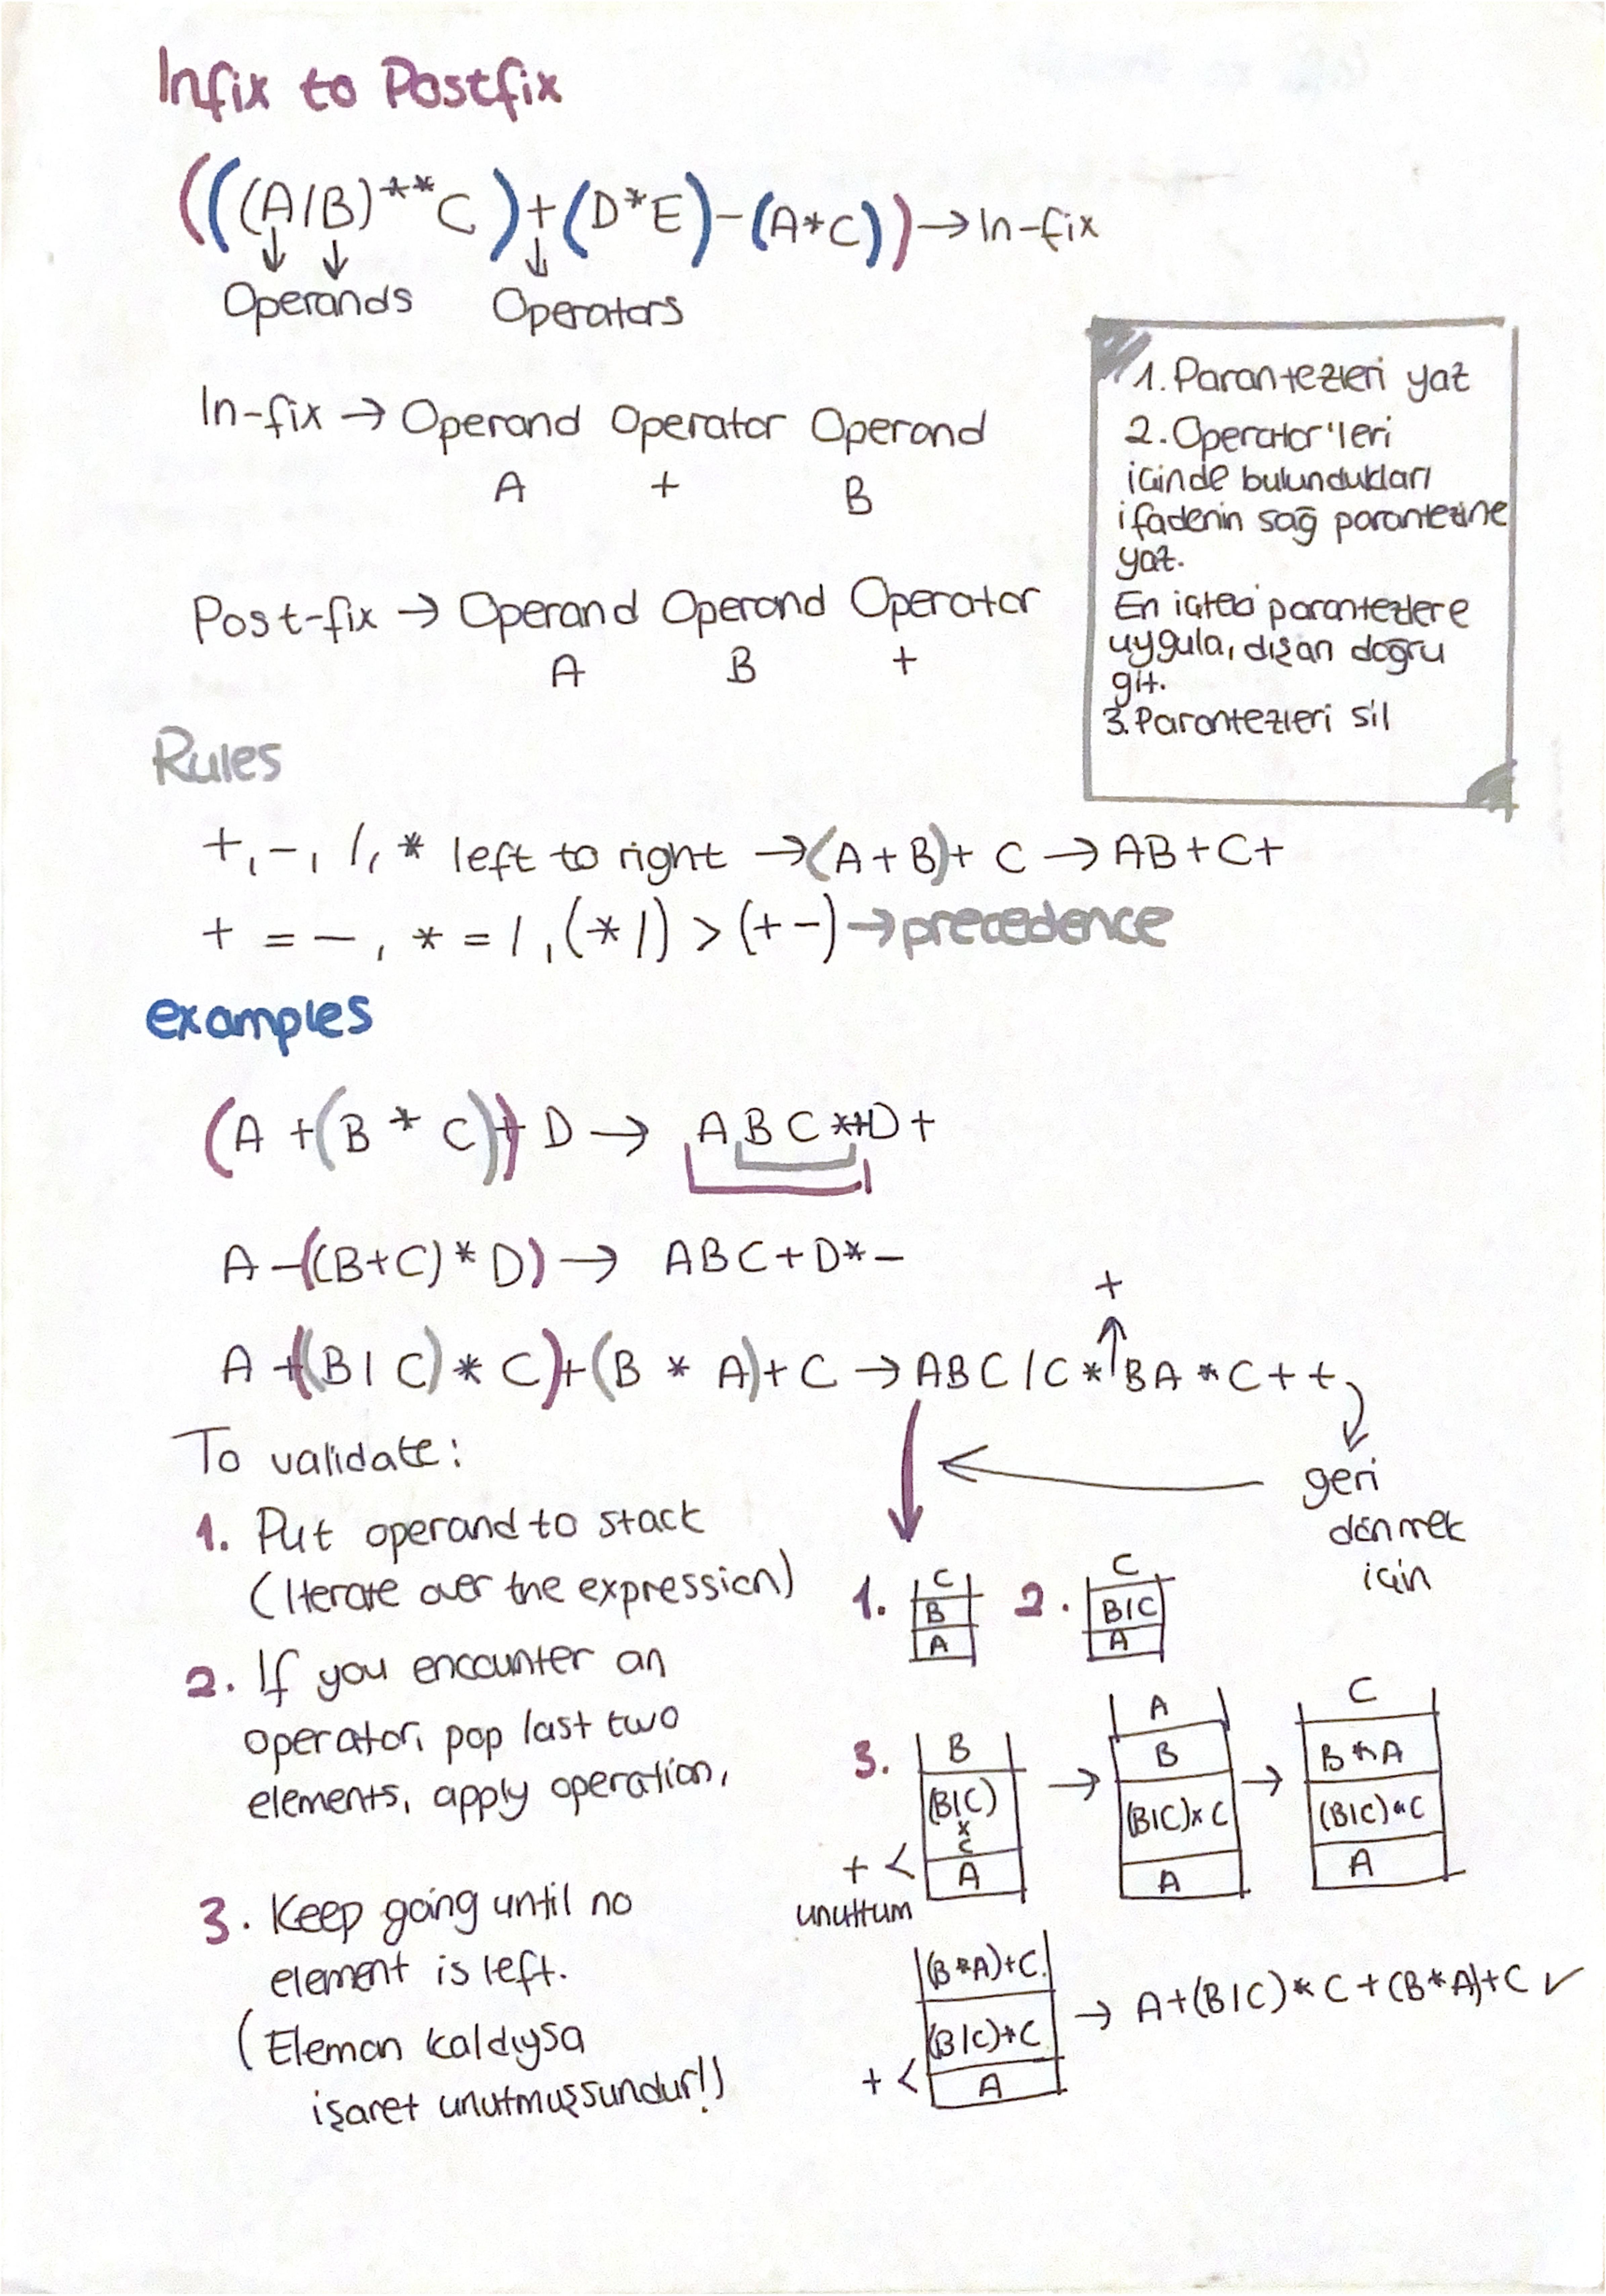 Infix to Postfix
(((A/B)**C)+(D*E)-(A*C)) → In-fix
Operands Operators
In-fix → Operand Operator Operand
A + B
Post-fix → Operand Operand Operator
A B +
1. Parantezleri yaz
2. Operator'leri
içinde bulundukları
ifadenin sağ parantezine
yaz.
En içteki parantezlere
uygula, dışarı doğru
git.
3. Parantezleri sil
Rules
+, -, /, * left to right → (A + B) + C → AB+C+
+ = -, * = /, (* /) > (+ -) → precedence
examples
(A + (B * C)) + D → ABC*+D+
A - ((B+C) * D) → ABC+D*-
+
A + ((B / C) * C) + (B * A) + C → ABC/C*↑BA*C++
geri
dönmek
için
To validate:
1. Put operand to stack
(Iterate over the expression)
2. If you encounter an
operator, pop last two
elements, apply operation,
3. Keep going until no
element is left.
(Eleman kaldıysa
işaret unutmuşsundur!)
1. C
B
A
2. C
B/C
A
3. B
(B/C)
x
C
A
+ <
unuttum
→ A
B
(B/C)x C
A
→ C
B*A
(B/C)*C
A
(B*A)+C
(B/C)*C
A
+ <
→ A+(B/C)*C+(B*A)+C ✓